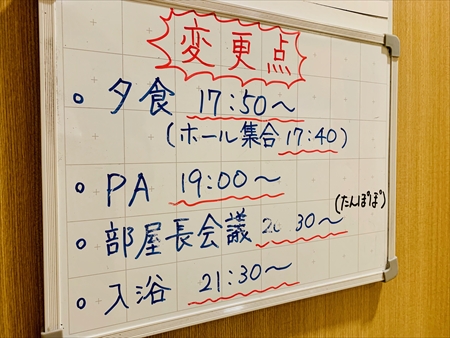 変更点
○ 夕食 17:50～
(ホール集合 17:40)
○ PA 19:00～
(たんぽぽ)
○ 部屋長会議 20:30～
○ 入浴 21:30～